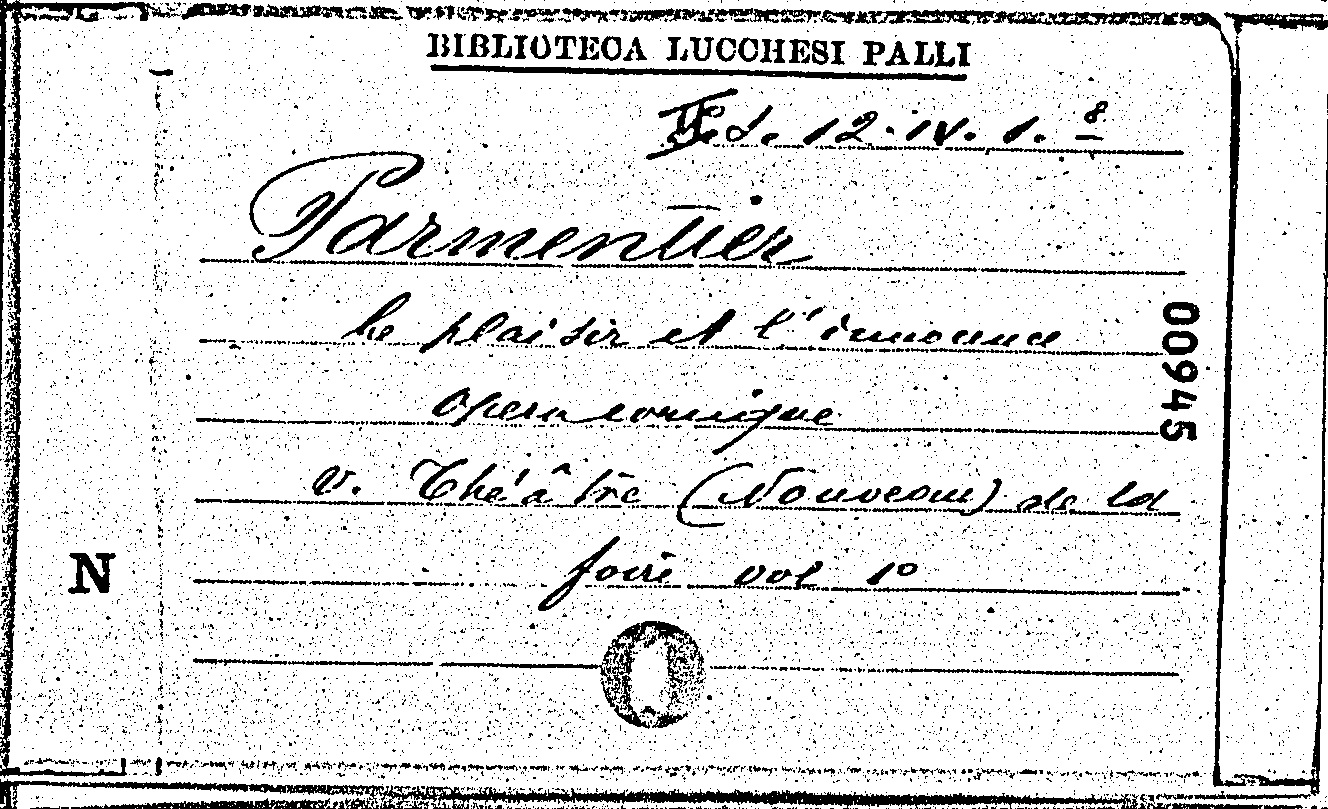 BIBLIOTECA LUCCHESI PALLI
12. IV. 1. 8
Parmentier
Le plaisir et l'innocence
Opera comique
v. Théâtre (Nouveau) de la
foire vol 1º
N
00945